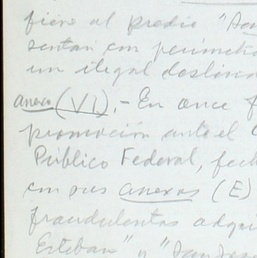 fiere al predio "San
sentan con perímetro
un ilegal deslinde
anexo (VI).- En once f
promoción ante el
Público Federal, fech
con sus anexos (E)
fraudulentas adqui
Esteban" y "San José